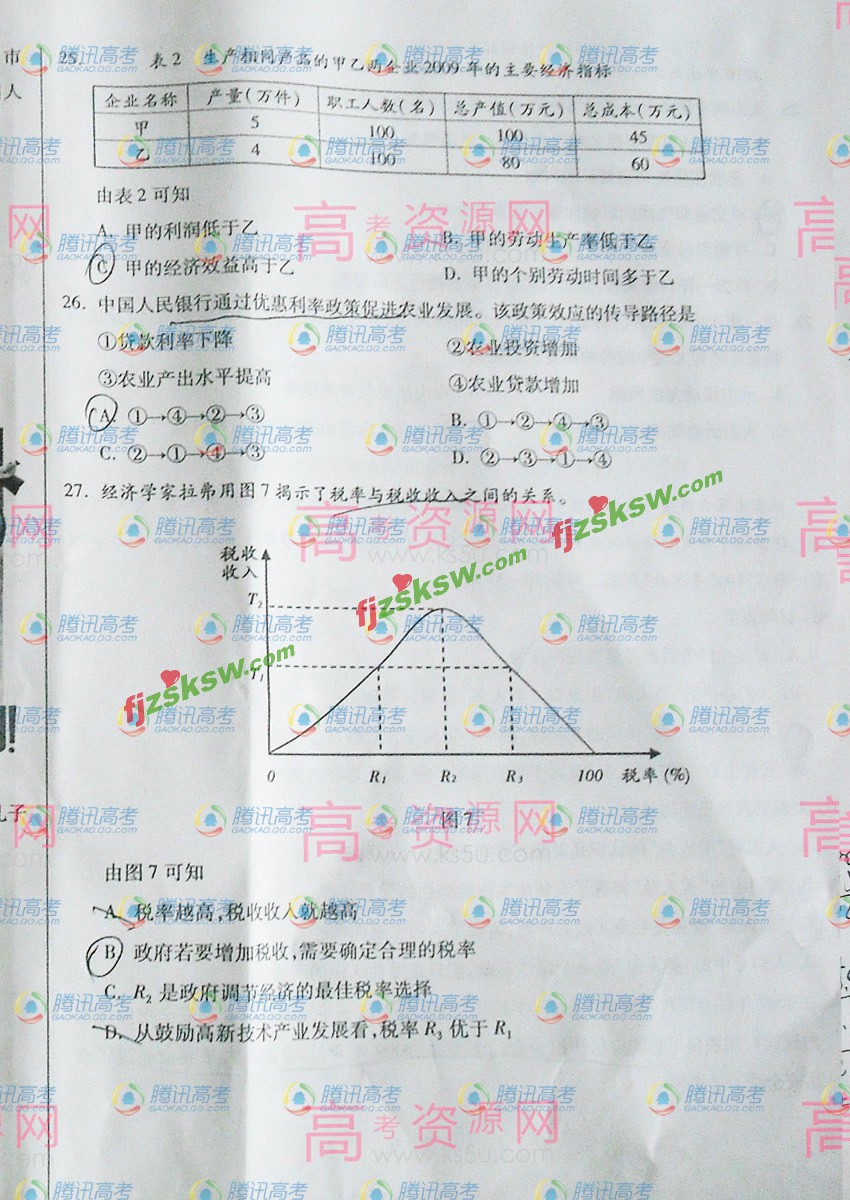 市
人
25.
表2 生产相同产品的甲乙两企业2009年的主要经济指标
企业名称 产量(万件) 职工人数(名) 总产值(万元) 总成本(万元)
甲 5 100 100 45
乙 4 100 80 60
由表2可知
A. 甲的利润低于乙 B. 甲的劳动生产率低于乙
C. 甲的经济效益高于乙 D. 甲的个别劳动时间多于乙
26. 中国人民银行通过优惠利率政策促进农业发展。该政策效应的传导路径是
①贷款利率下降 ②农业投资增加
③农业产出水平提高 ④农业贷款增加
A. ①→④→②→③ B. ①→②→④→③
C. ②→①→④→③ D. ②→③→①→④
27. 经济学家拉弗用图7揭示了税率与税收收入之间的关系。
税收
收入
T2
T1
0 R1 R2 R3 100 税率(%)
图7
由图7可知
A. 税率越高,税收收入就越高
B. 政府若要增加税收,需要确定合理的税率
C. R2 是政府调节经济的最佳税率选择
D. 从鼓励高新技术产业发展看,税率 R3 优于 R1
孔子
fjzsksw.com
fjzsksw.com
fjzsksw.com
腾讯高考
GAOKAO.QQ.COM
高考资源网
www.ks5u.com